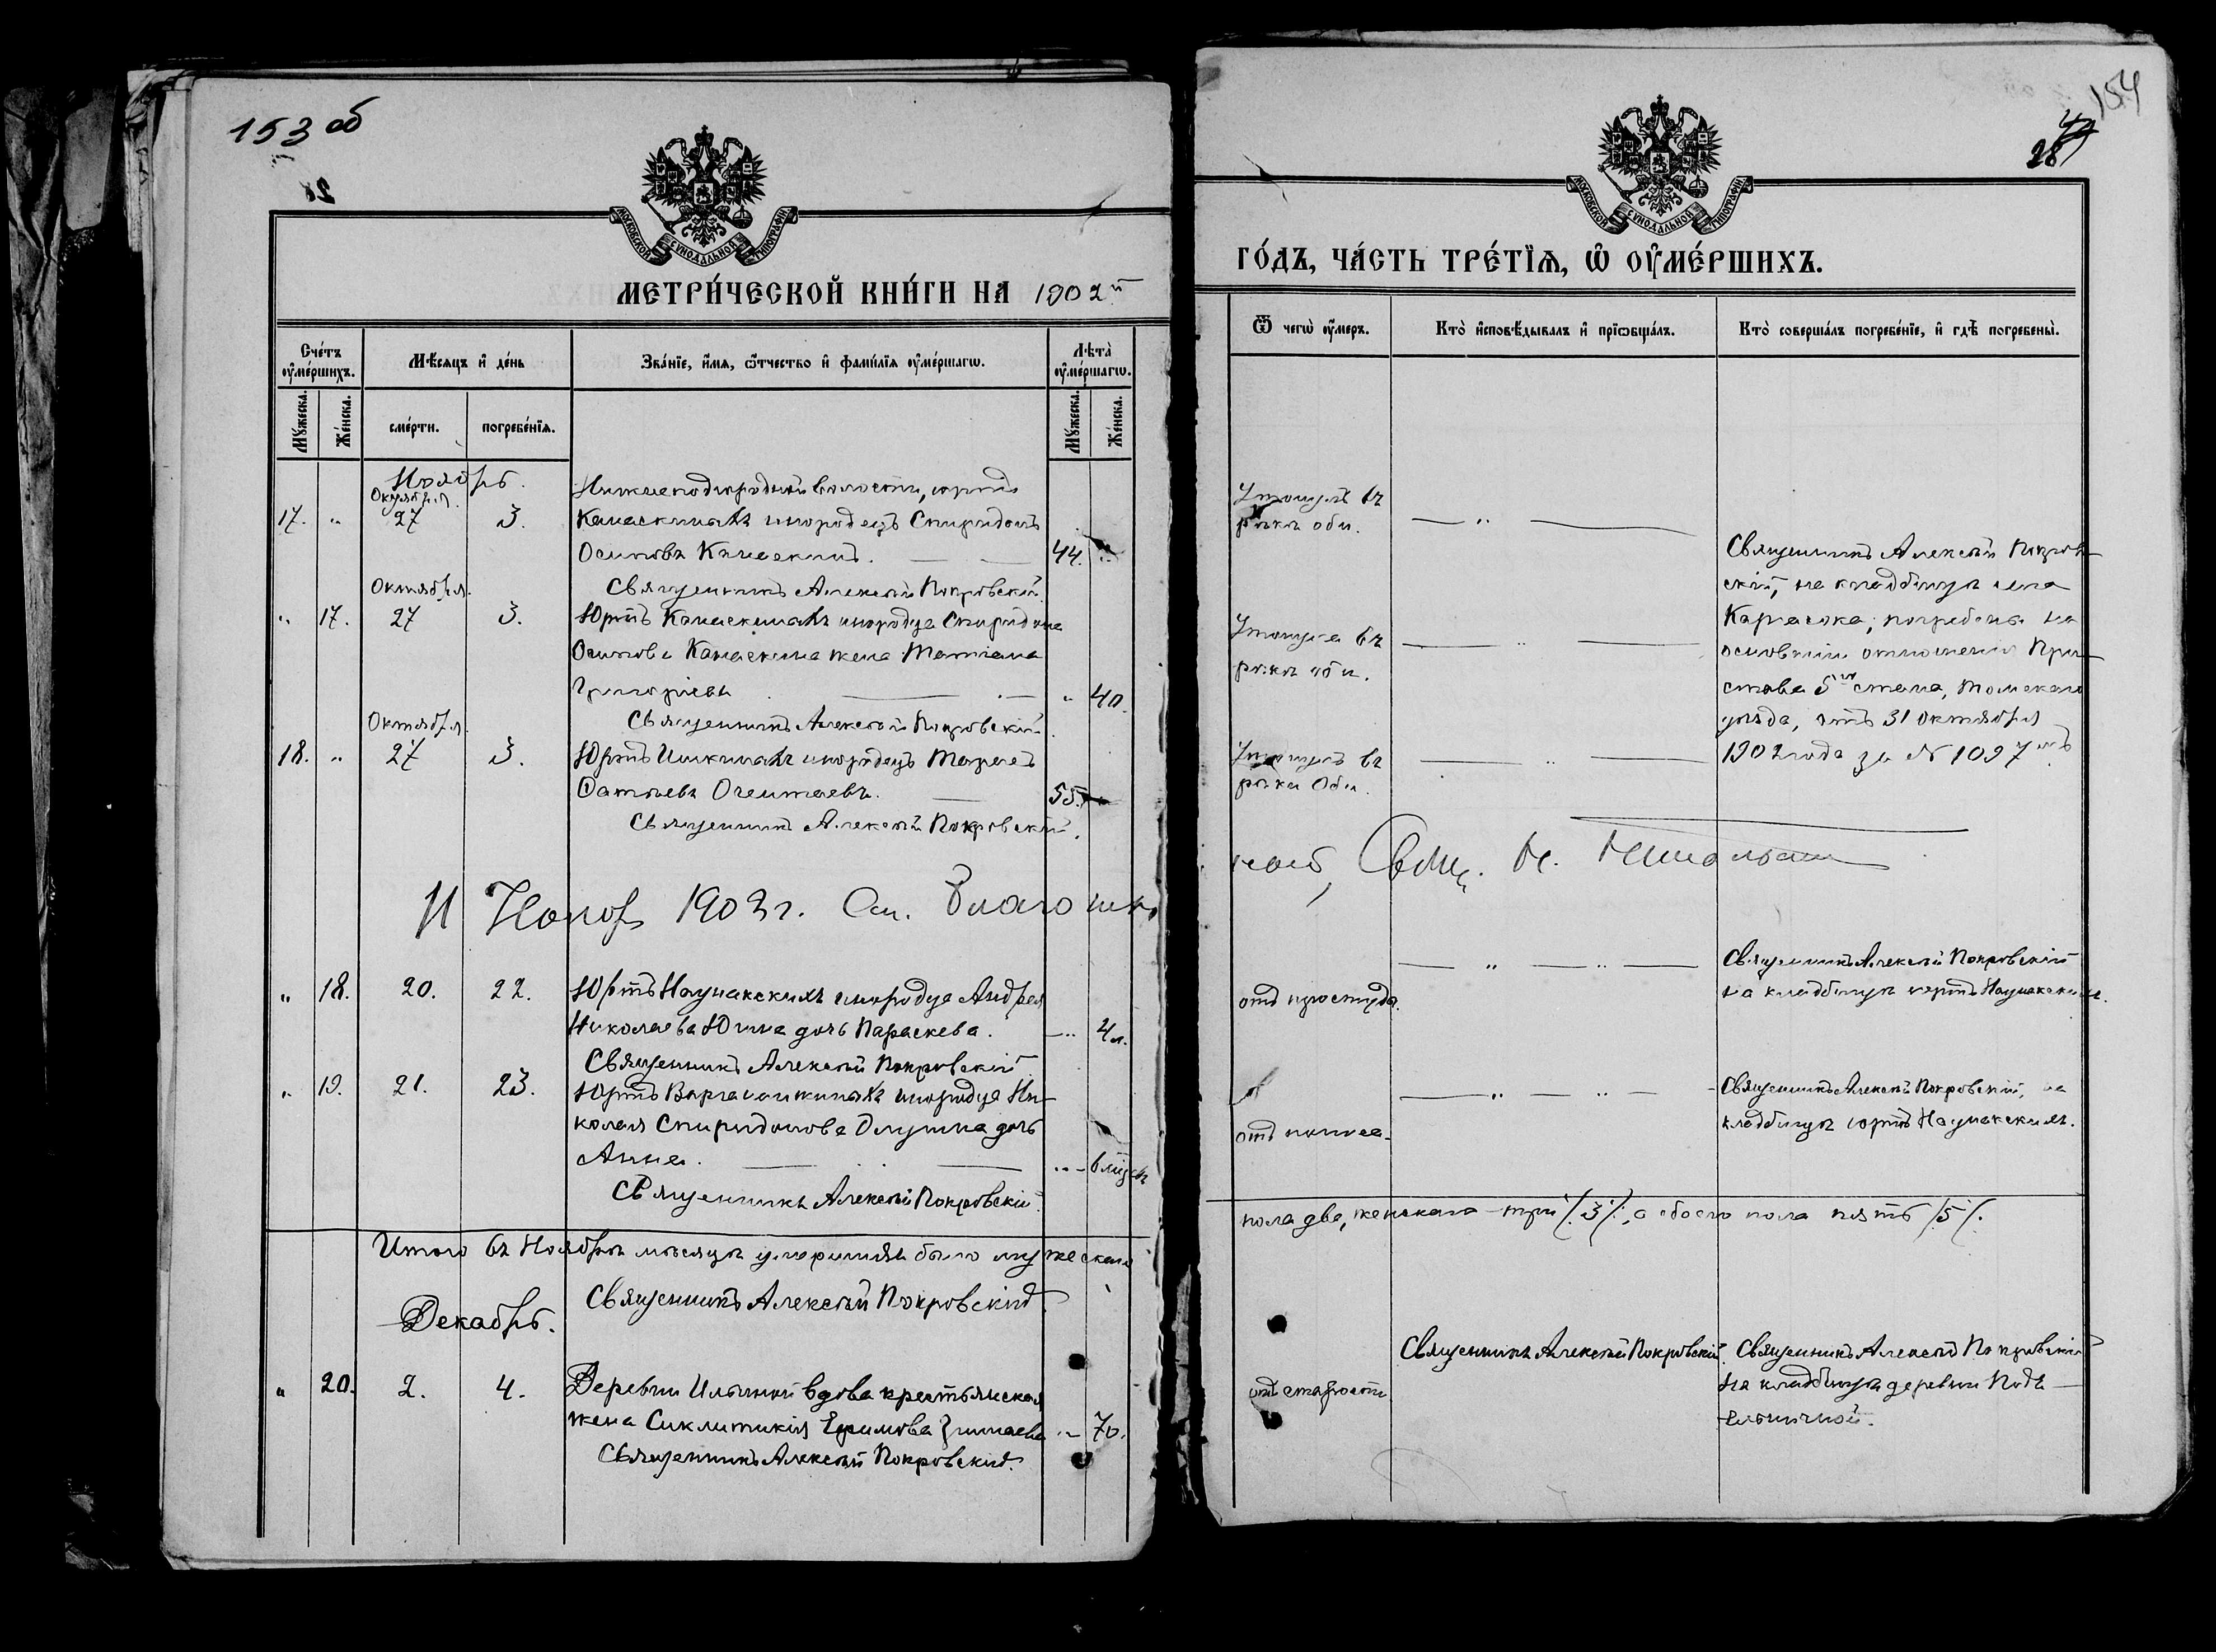 153 об
МОСКОВСКОЙ СѴНОДАЛЬНОЙ ТИПОГРАФІИ
МЕТРИ́ЧЕСКОЙ КНИ́ГИ НА 1902й
Сче́тъ ᲂу҆ме́ршихъ.
Мѣ́сяцъ и҆ де́нь
Зва́нїе, и҆́мя, ѿтчество и҆ фами́лїя ᲂу҆ме́ршагѡ.
Лѣ́та ᲂу҆ме́ршагѡ.
Мꙋ́жеска.
Же́нска.
сме́рти.
погребе́нїя.
Мꙋ́жеска.
Же́нска.
Ноябрь.
Октября.
17. " 27 3.
волости, юртъ
инородецъ Спиридонъ
Осиповъ 44.
Священникъ Алексѣй Покровскій.
Октября.
" 17. 27 3.
Юртъ инородца Спиридона
Осипова жена Татіана
Григоріева " 40.
Священникъ Алексѣй Покровскій.
Октября.
18. " 27 3.
Юртъ инородецъ
55.
Священникъ Алексѣй Покровскій.
1903 г.
" 18. 20. 22.
Юртъ Наунакскихъ инородца Андрея
Николаева Юина дочь Параскева. " 4 л.
Священникъ Алексѣй Покровскій
" 19. 21. 23.
Юртъ инородца Ни-
колая Спиридонова дочь
Анна. "
Священникъ Алексѣй Покровскій.
Итого въ Ноябрѣ мѣсяцѣ умершихъ было мужескаго
Священникъ Алексѣй Покровскій
Декабрь.
" 20. 2. 4.
Деревни вдова крестьянская
жена Синклитикія Ефимова " 70.
Священникъ Алексѣй Покровскій.
154
28
МОСКОВСКОЙ СѴНОДАЛЬНОЙ ТИПОГРАФІИ
ГО́ДЪ, ЧА́СТЬ ТРЕ́ТЇѦ, Ѡ҆ ОУ҆МЕ́РШИХЪ.
Ѿ чегѡ̀ ᲂу҆́меръ.
Кто̀ и҆сповѣ́дывалъ и҆ прїѡбща́лъ.
Кто̀ соверша́лъ погребе́нїе, и҆ гдѣ̀ погребены̀.
Утонулъ въ
рѣкѣ Оби.
Священникъ Алексѣй Покров-
скій, на кладбищѣ села
Каргасока; погребены на
основаніи отношенія При-
става 5го стана, Томскаго
уѣзда, отъ 31 октября
1902 года за № 1097мъ
Утонула въ
рѣкѣ Оби.
Утонулъ въ
рѣкѣ Оби.
Свящ. Н.
отъ простуды.
Священникъ Алексѣй Покровскій
на кладбищѣ юртъ Наунакскихъ.
отъ поноса.
Священникъ Алексѣй Покровскій, на
кладбищѣ юртъ Наунакскихъ.
пола два, женскаго - три /3/, а обоего пола пять /5/.
отъ старости
Священникъ Алексѣй Покровскій.
Священникъ Алексѣй Покровскій
на кладбищѣ деревни Подъ-
ельничной.